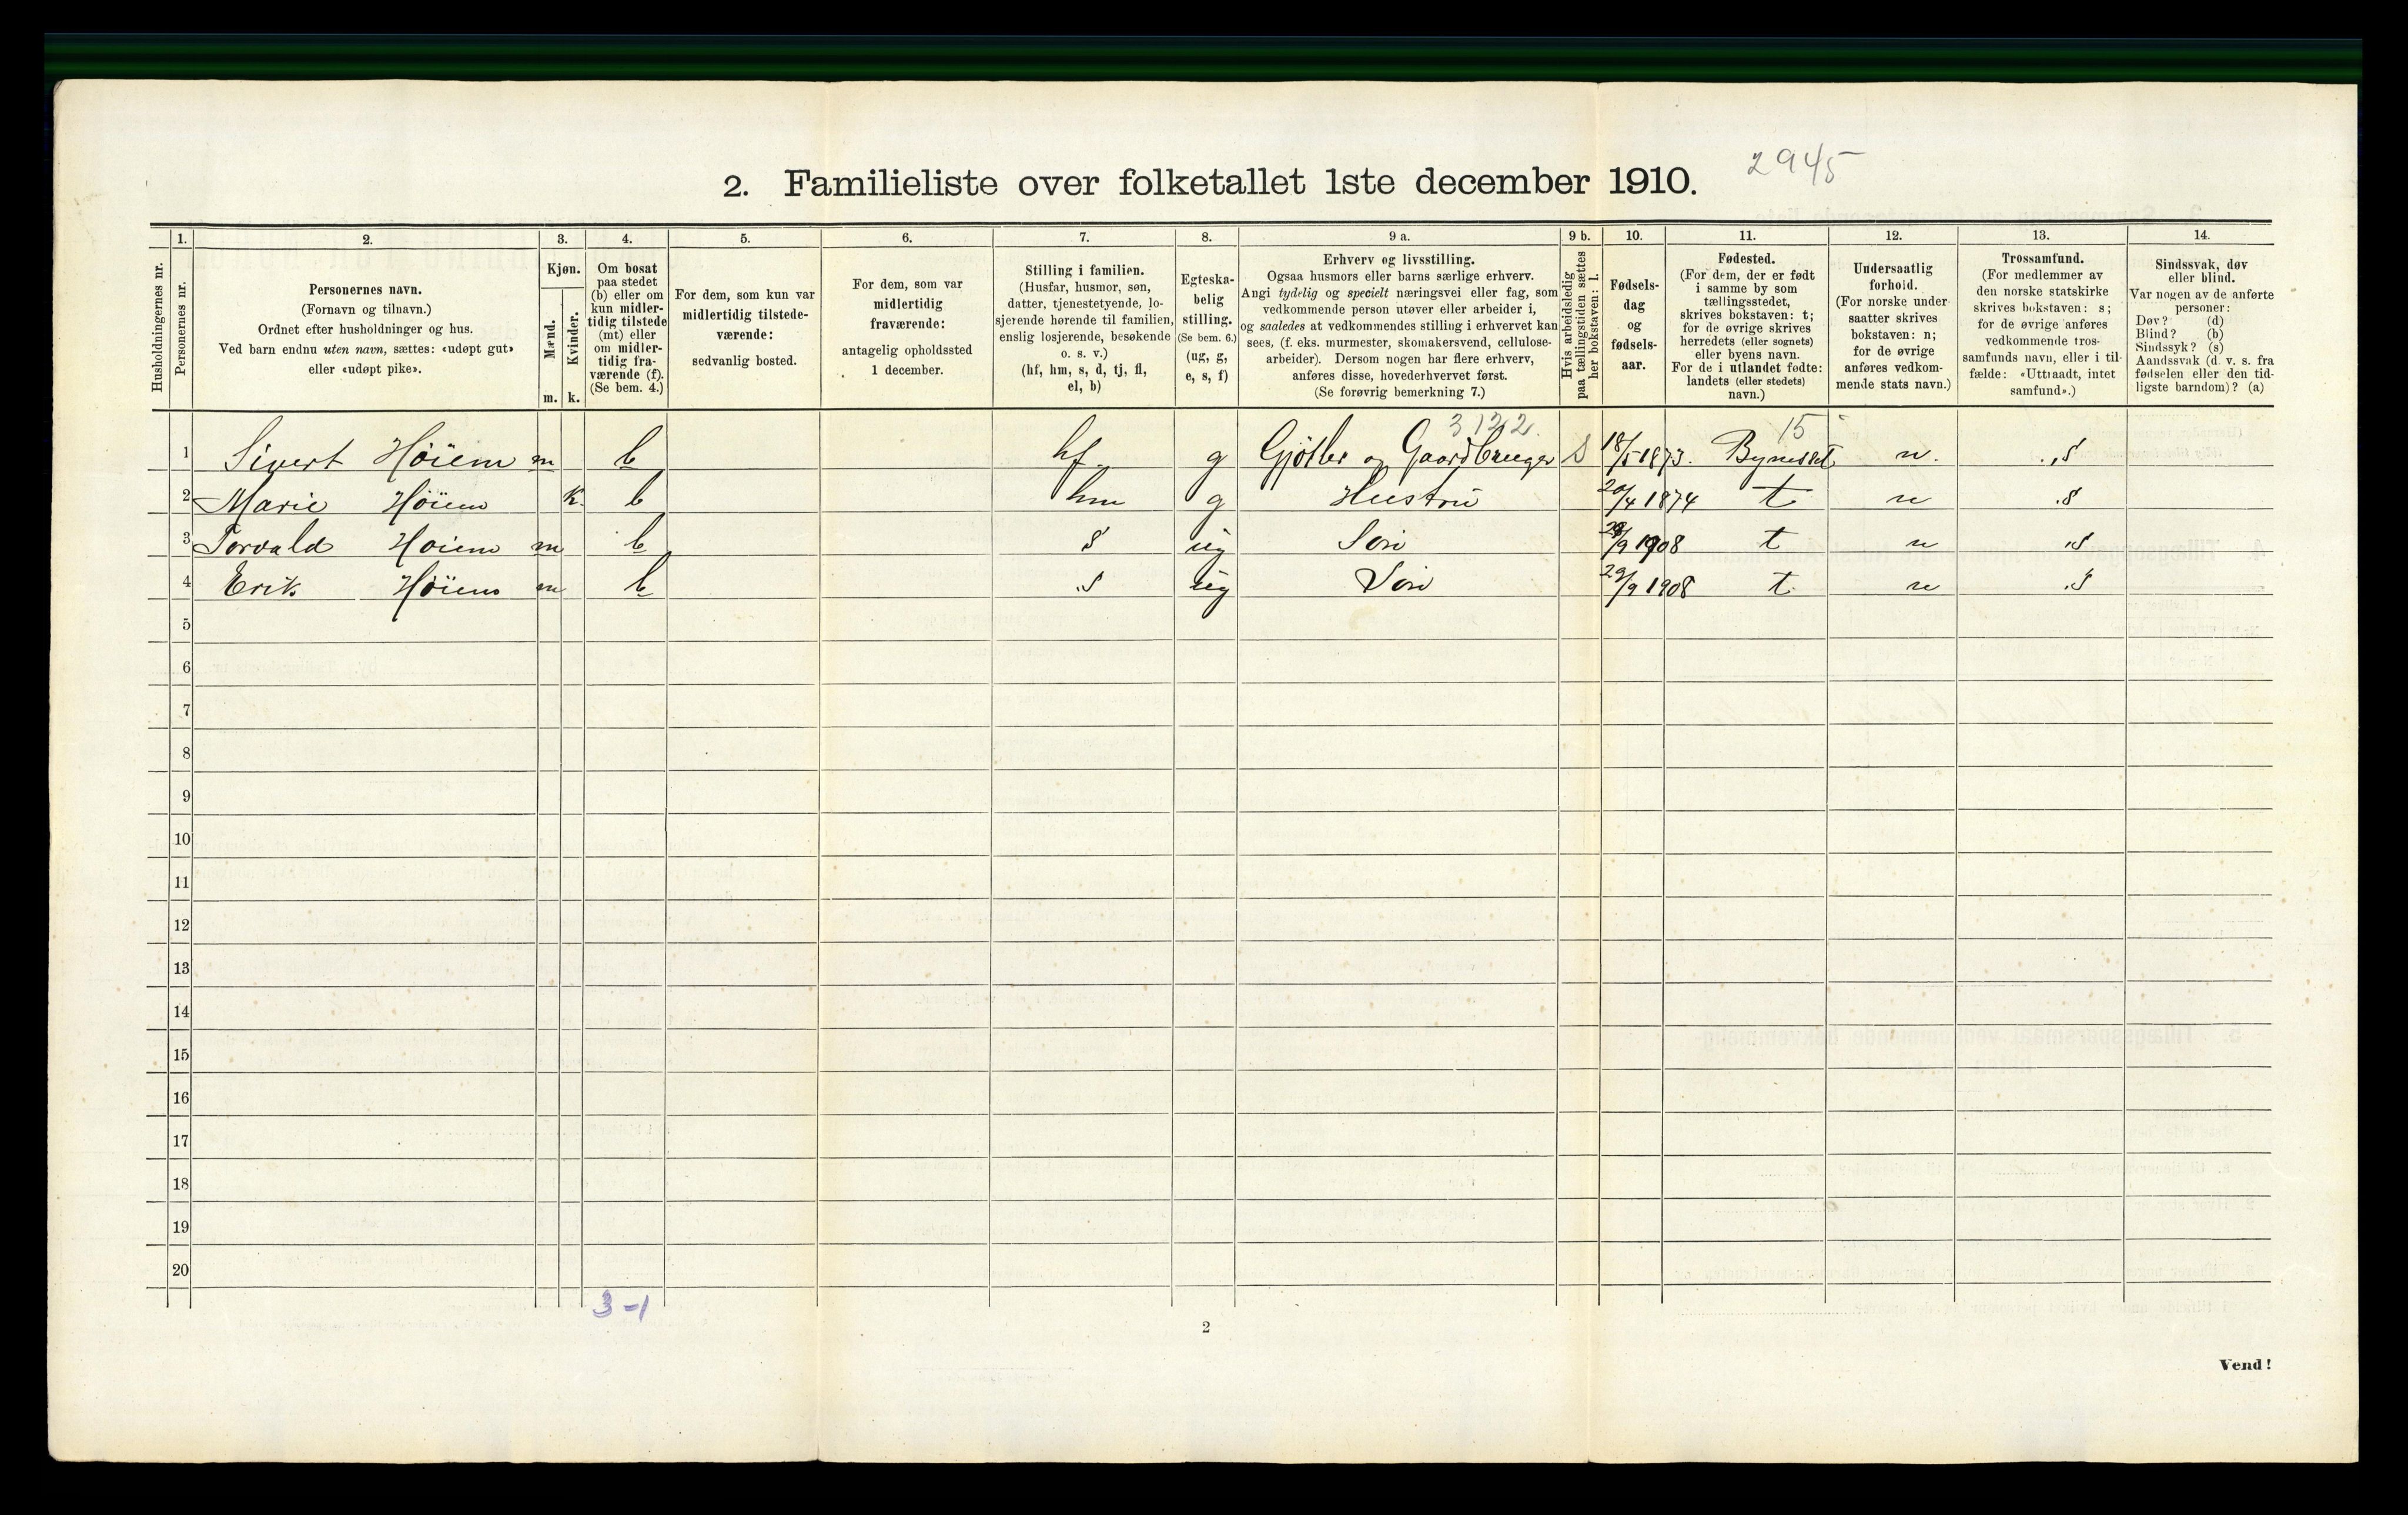 2. Familieliste over folketallet 1ste december 1910. 2945
1. 2. 3. 4. 5. 6. 7. 8. 9 a. 9 b. 10. 11. 12. 13. 14.
Husholdningernes nr.
Personernes nr.
Personernes navn.
(Fornavn og tilnavn.)
Ordnet efter husholdninger og hus.
Ved barn endnu uten navn, sættes: «udøpt gut»
eller «udøpt pike».
Kjøn.
Mænd.
Kvinder.
m. k.
Om bosat
paa stedet
(b) eller om
kun midler-
tidig tilstede
(mt) eller
om midler-
tidig fra-
værende (f).
(Se bem. 4.)
For dem, som kun var
midlertidig tilstede-
værende:
sedvanlig bosted.
For dem, som var
midlertidig
fraværende:
antagelig opholdssted
1 december.
Stilling i familien.
(Husfar, husmor, søn,
datter, tjenestetyende, lo-
sjerende hørende til familien,
enslig losjerende, besøkende
o. s. v.)
(hf, hm, s, d, tj, fl,
el, b)
Egteska-
belig
stilling.
(Se bem. 6.)
(ug, g,
e, s, f)
Erhverv og livsstilling.
Ogsaa husmors eller barns særlige erhverv.
Angi tydelig og specielt næringsvei eller fag, som
vedkommende person utøver eller arbeider i,
og saaledes at vedkommendes stilling i erhvervet kan
sees, (f. eks. murmester, skomakersvend, cellulose-
arbeider). Dersom nogen har flere erhverv,
anføres disse, hovederhvervet først.
(Se forøvrig bemerkning 7.)
Hvis arbeidsledig
paa tællingstiden sættes
her bokstaven: l.
Fødsels-
dag
og
fødsels-
aar.
Fødested.
(For dem, der er født
i samme by som
tællingsstedet,
skrives bokstaven: t;
for de øvrige skrives
herredets (eller sognets)
eller byens navn.
For de i utlandet fødte:
landets (eller stedets)
navn.)
Undersaatlig
forhold.
(For norske under-
saatter skrives
bokstaven: n;
for de øvrige
anføres vedkom-
mende stats navn.)
Trossamfund.
(For medlemmer av
den norske statskirke
skrives bokstaven: s;
for de øvrige anføres
vedkommende tros-
samfunds navn, eller i til-
fælde: «Uttraadt, intet
samfund».)
Sindssvak, døv
eller blind.
Var nogen av de anførte
personer:
Døv? (d)
Blind? (b)
Sindssyk? (s)
Aandssvak (d. v. s. fra
fødselen eller den tid-
ligste barndom)? (a)
3122. 15
1 Sivert Höiem m b hf. g Gjötler og Gaardbruger S 18/5 1873. Bynesset n. s
2 Marie Höiem k. b hm g Hustru 20/4 1874 t n s
3 Torvald Hoiem m b s ug Sön /9 1908 t n s
4 Erik Höiem m b s ug Sön 29/9 1908 t. n s
5
6
7
8
9
10
11
12
13
14
15
16
17
18
19
20
3-1
2
Vend!